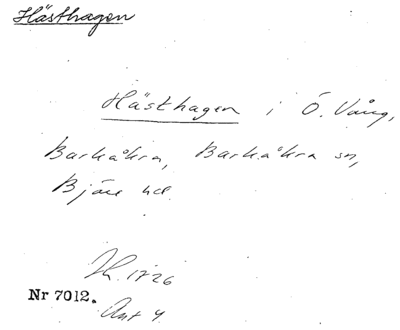 Hästhagen
Hästhagen i Ö. Vång,
Barkåkra, Barkåkra sn,
Bjäre hd.
1726
Nr 7012.
Akt 4.